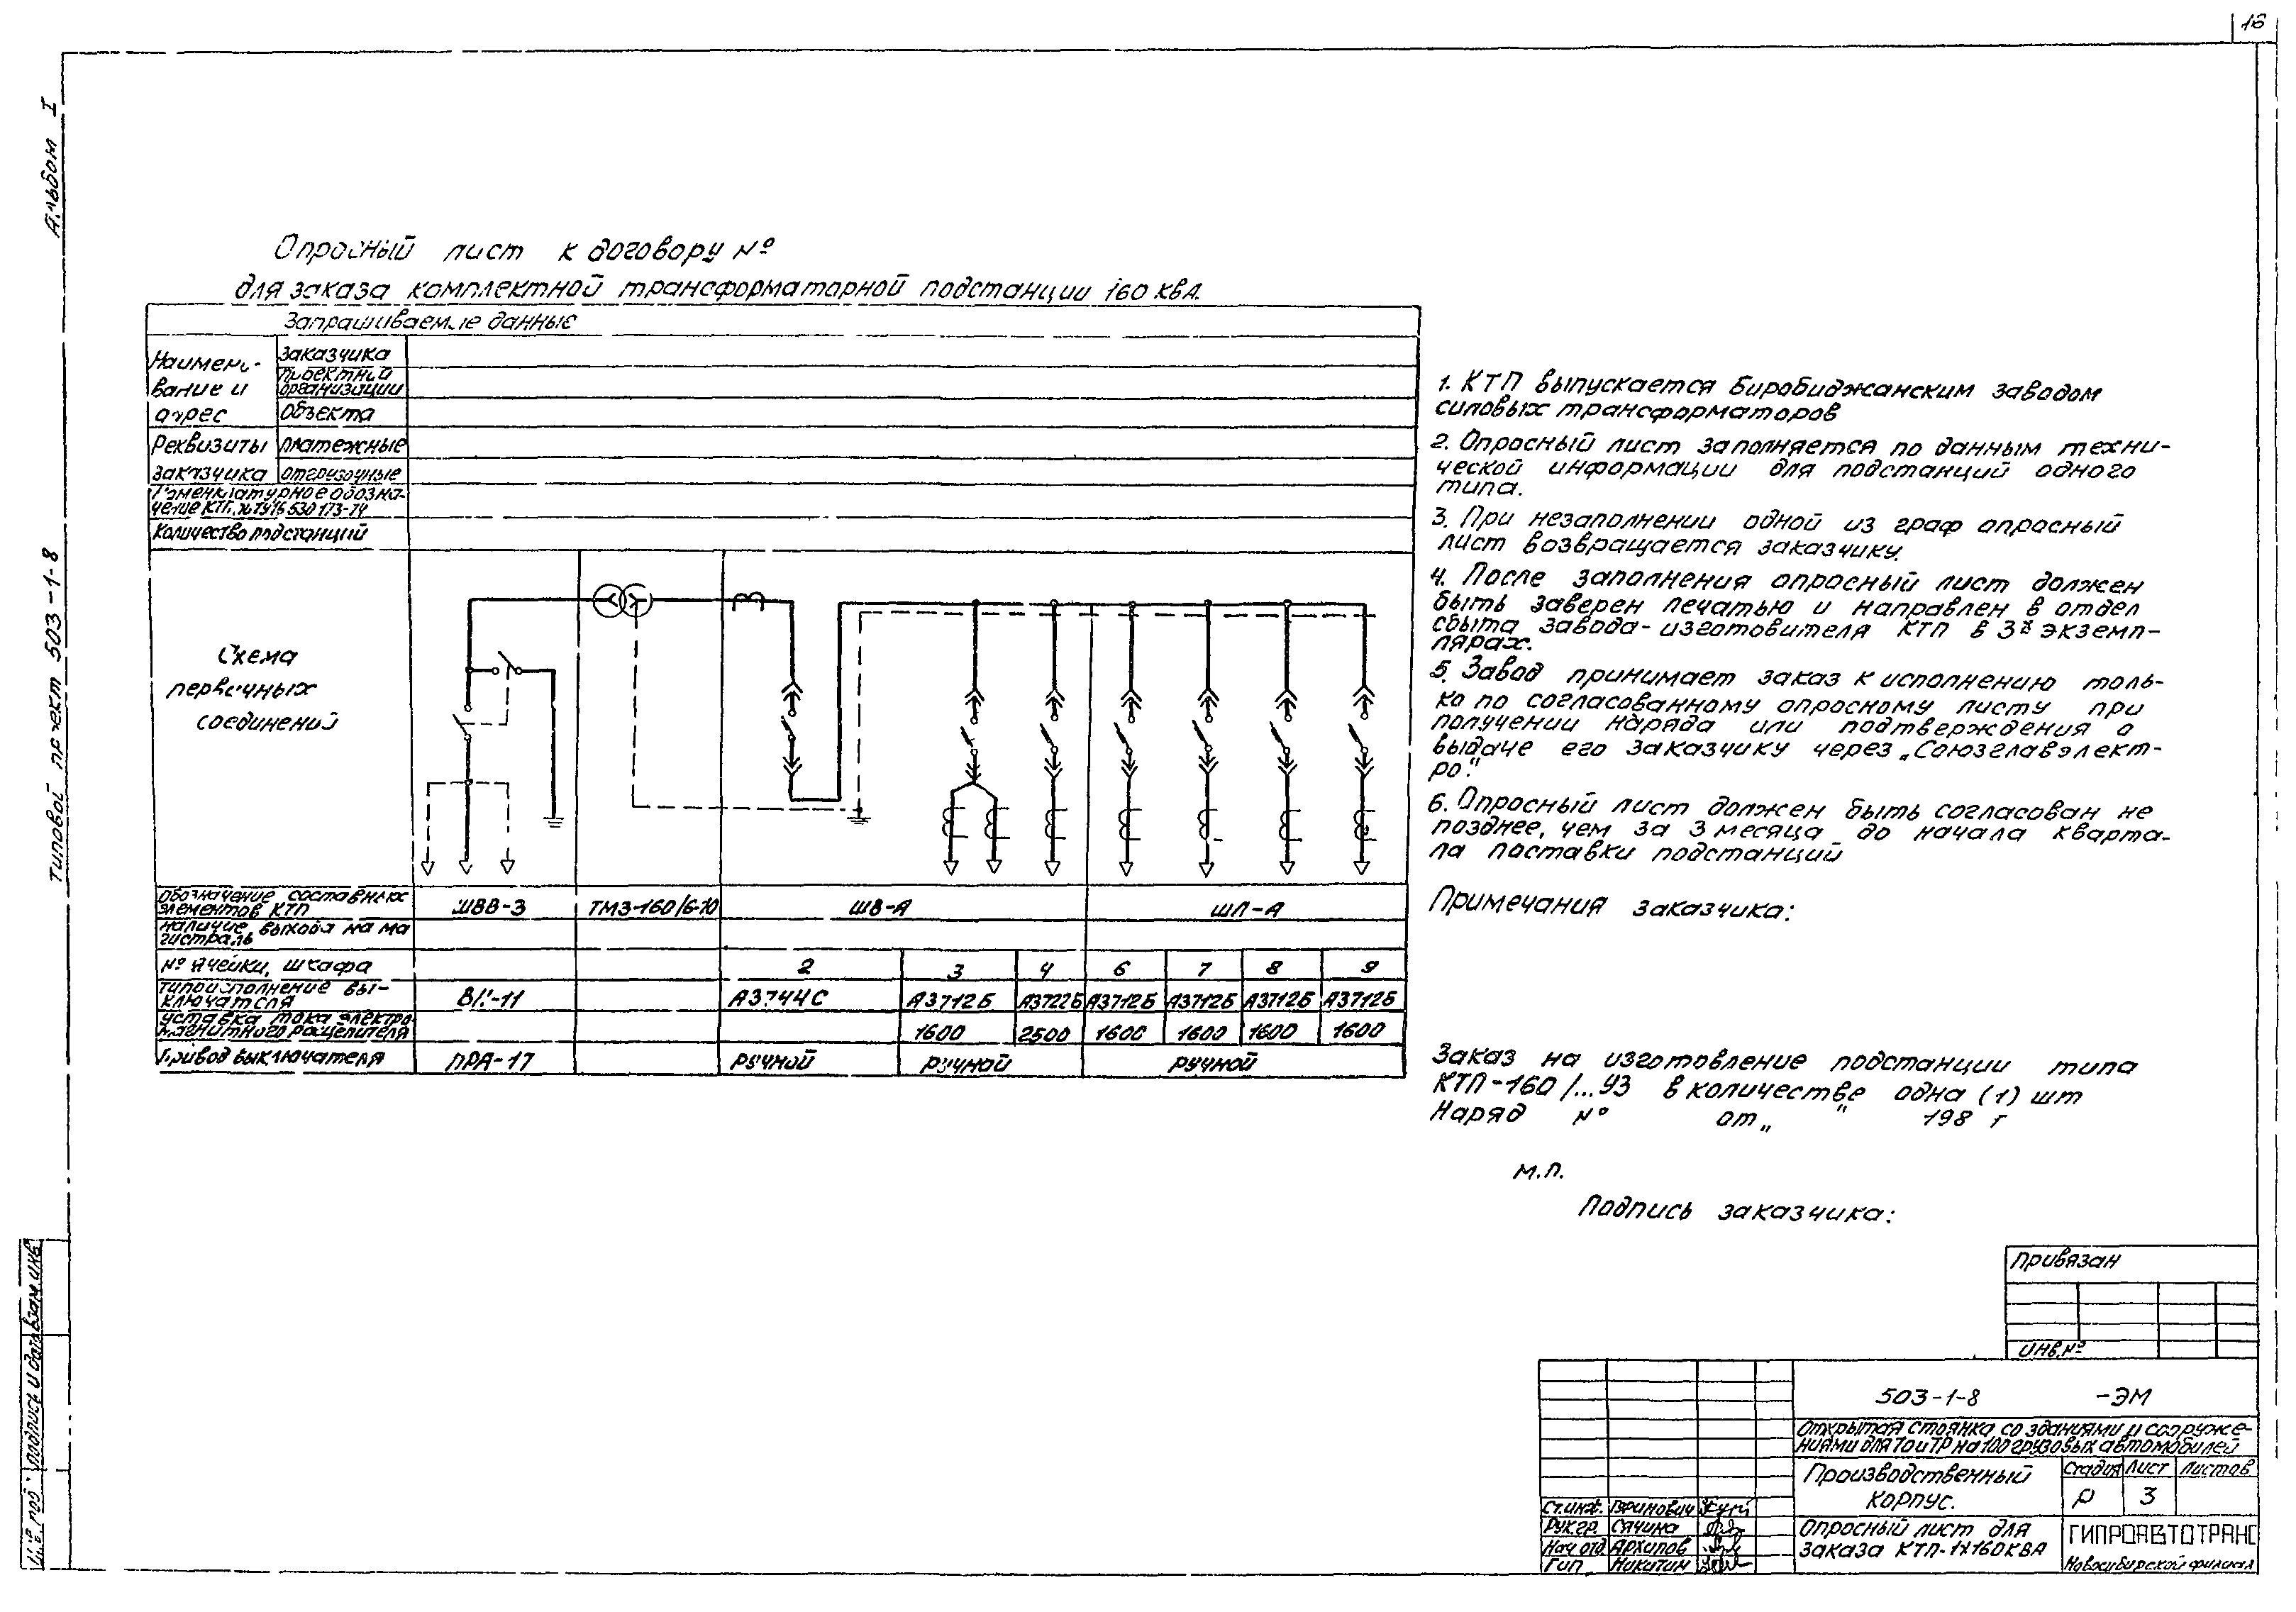 16
Альбом I
Типовой проект 503-1-8
Опросный лист к договору №
для заказа комплектной трансформаторной подстанции 160 кВА.
Запрашиваемые данные
Наимено-
вание и
адрес
заказчика
проектной
организации
объекта
Реквизиты
заказчика
платежные
отгрузочные
Номенклатурное обозна-
чение КТП, № ТУ16 530 173-74
Количество подстанций
Схема
первичных
соединений
Обозначение составных
элементов КТП
ШВВ-3
ТМЗ-160/6-10
ШВ-А
ШЛ-А
наличие выхода на ма
гистраль
№ ячейки, шкафа
2
3
4
6
7
8
9
Типоисполнение вы-
ключателя
ВН-11
А3744С
А3712Б
А3722Б
А3712Б
А3712Б
А3712Б
А3712Б
уставка тока электро
магнитного расцепителя
1600
2500
1600
1600
1600
1600
Привод выключателя
ПРА-17
ручной
ручной
ручной
1. КТП выпускается Биробиджанским заводом
силовых трансформаторов
2. Опросный лист заполняется по данным техни-
ческой информации для подстанций одного
типа.
3. При незаполнении одной из граф опросный
лист возвращается заказчику.
4. После заполнения опросный лист должен
быть заверен печатью и направлен в отдел
сбыта завода-изготовителя КТП в 3х экземп-
лярах.
5. Завод принимает заказ к исполнению толь-
ко по согласованному опросному листу при
получении наряда или подтверждения о
выдаче его заказчику через „Союзглавэлект-
ро."
6. Опросный лист должен быть согласован не
позднее, чем за 3 месяца до начала кварта-
ла поставки подстанций
Примечания заказчика:
Заказ на изготовление подстанции типа
КТП-160/...У3 в количестве одна (1) шт
Наряд № от „ " 198 г
М.П.
Подпись заказчика:
Привязан
Инв.№
503-1-8 -ЭМ
Открытая стоянка со зданиями и сооруже-
ниями для ТО и ТР на 100 грузовых автомобилей
Производственный
корпус.
Стадия Лист Листов
Р 3
Опросный лист для
заказа КТП-1х160КВА
ГИПРОАВТОТРАНС
Новосибирской филиал
Ст.инж.
Рук.гр. Сячина
Нач отд Архипов
Гип Никитин
Взам.инв
подпись и дата
Инв. под